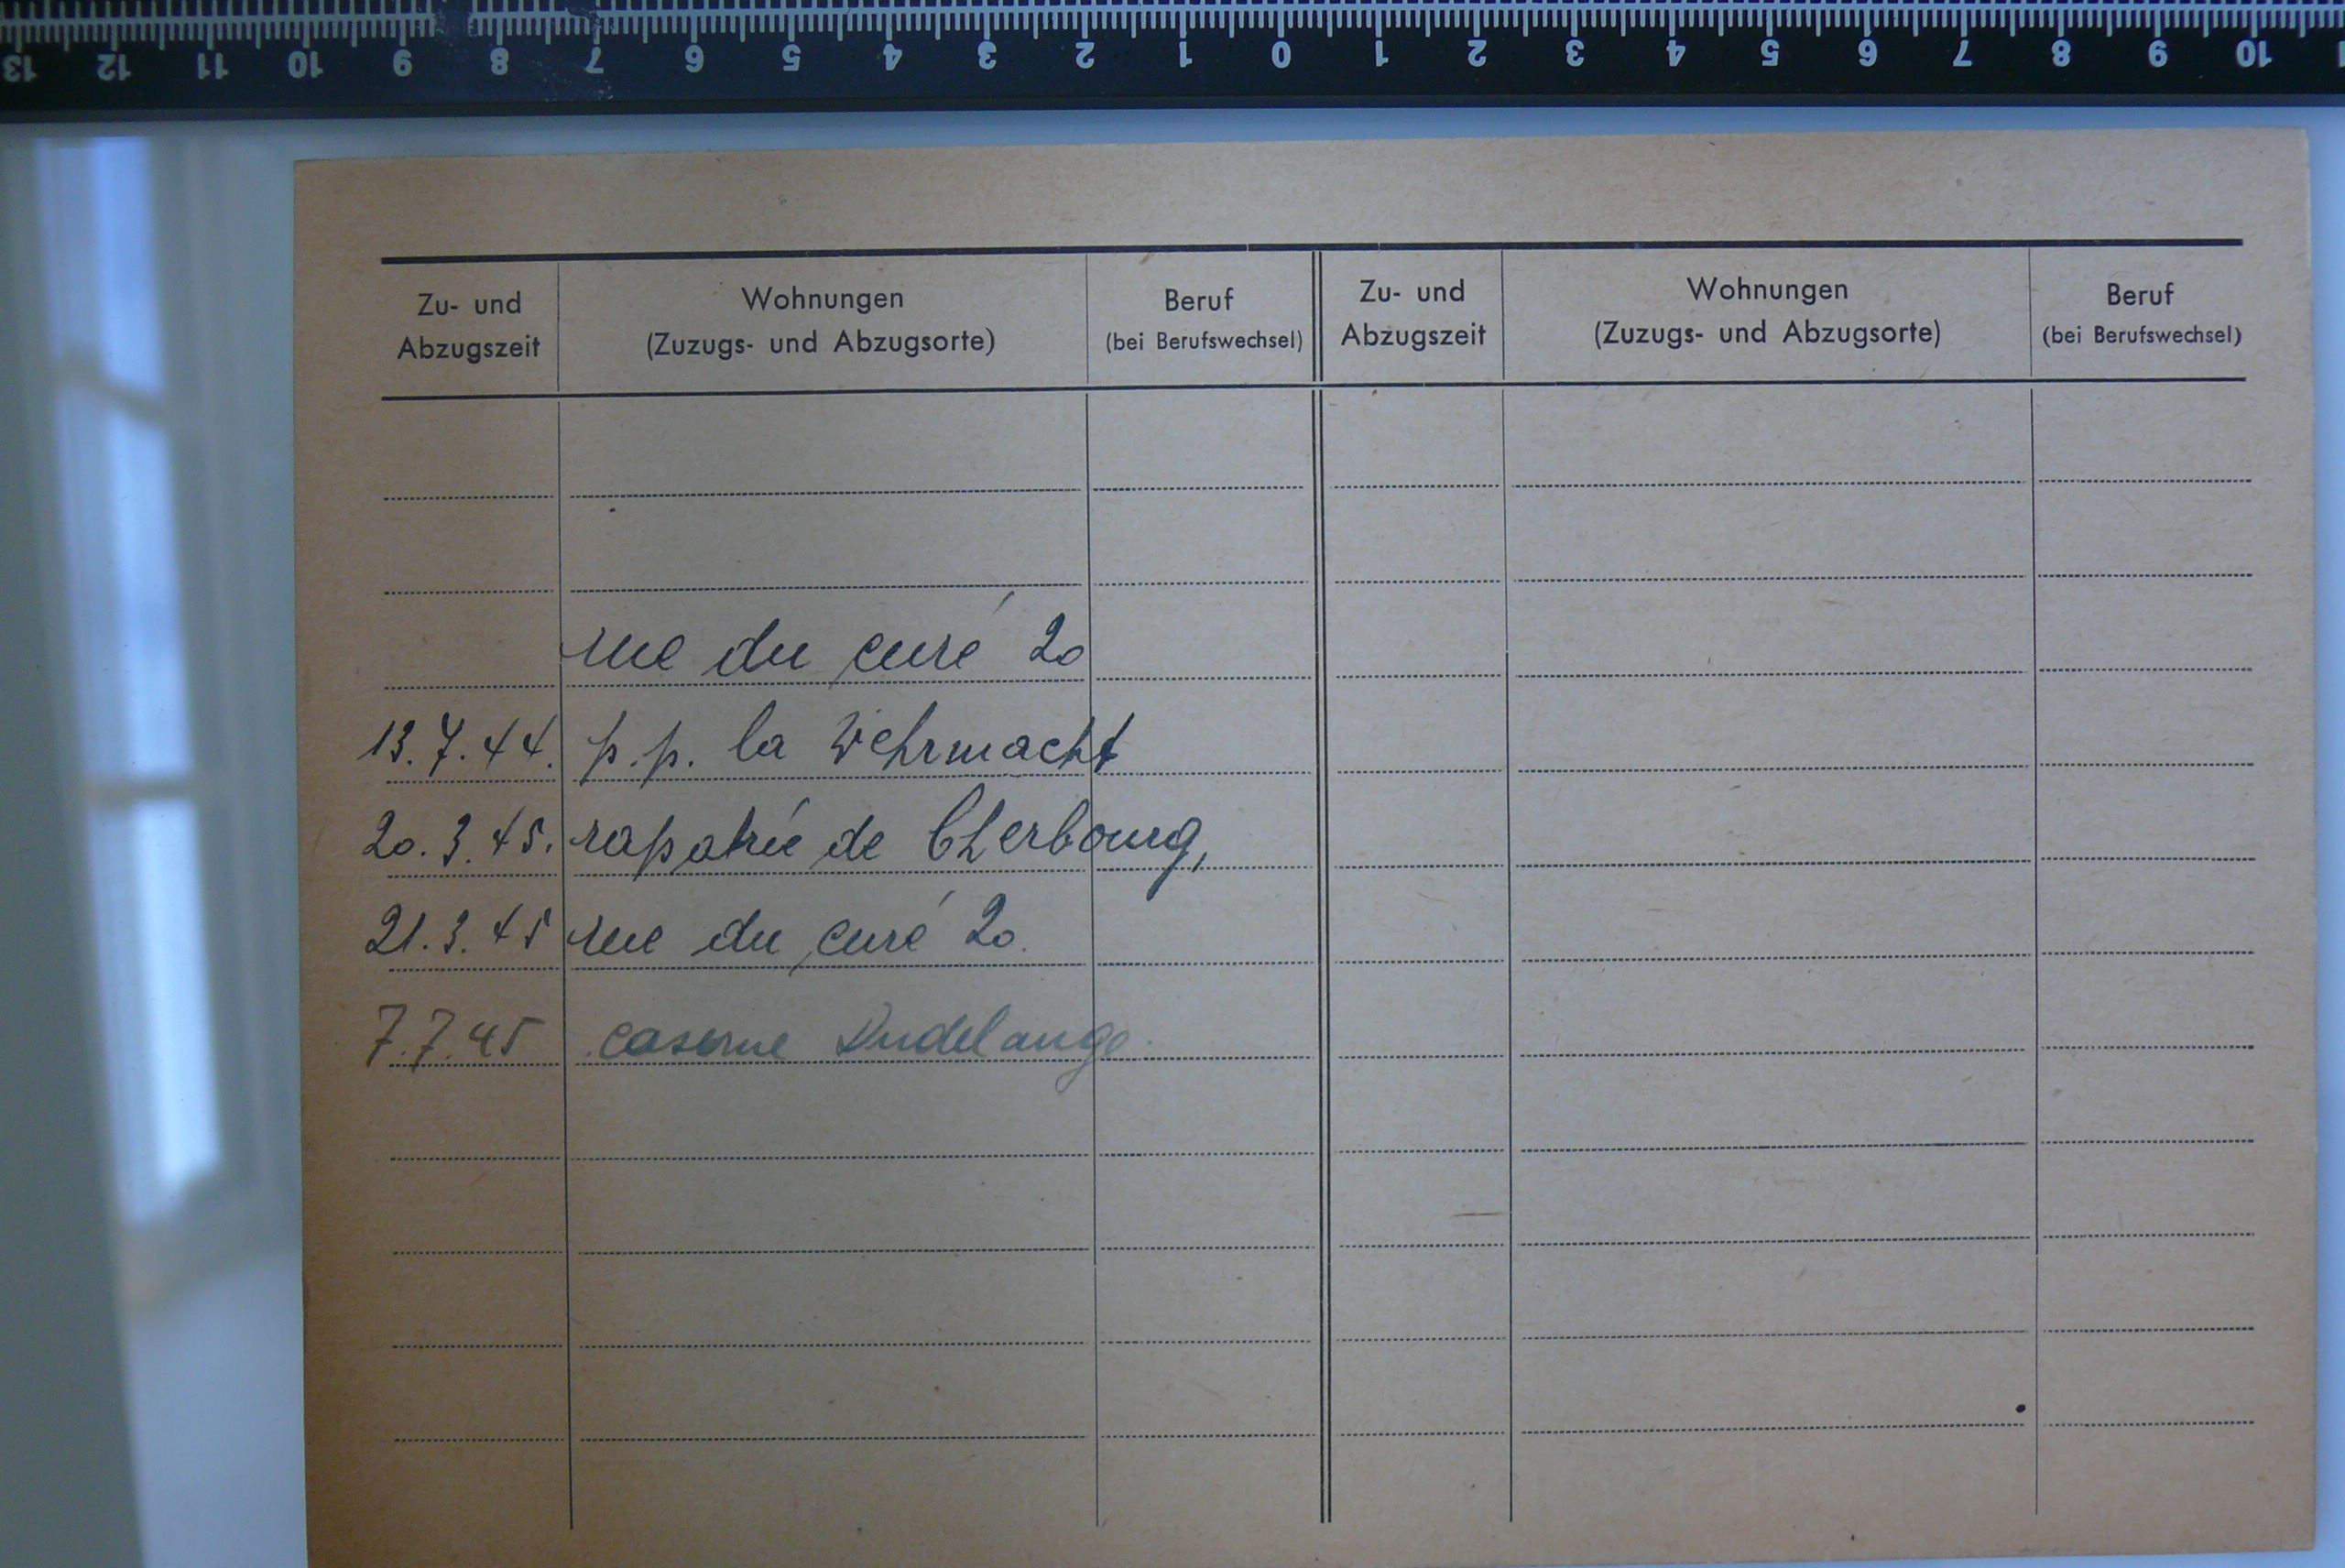 13 12 11 10 9 8 7 6 5 4 3 2 1 0 1 2 3 4 5 6 7 8 9 10
Zu- und Abzugszeit
Wohnungen
(Zuzugs- und Abzugsorte)
Beruf
(bei Berufswechsel)
Zu- und Abzugszeit
Wohnungen
(Zuzugs- und Abzugsorte)
Beruf
(bei Berufswechsel)
rue du curé 20
13.7.44. p.p. la Wehrmacht
20.3.45. rapatrié de Cherbourg,
21.3.45 rue du curé 20.
7.7.45 caserne Dudelange.